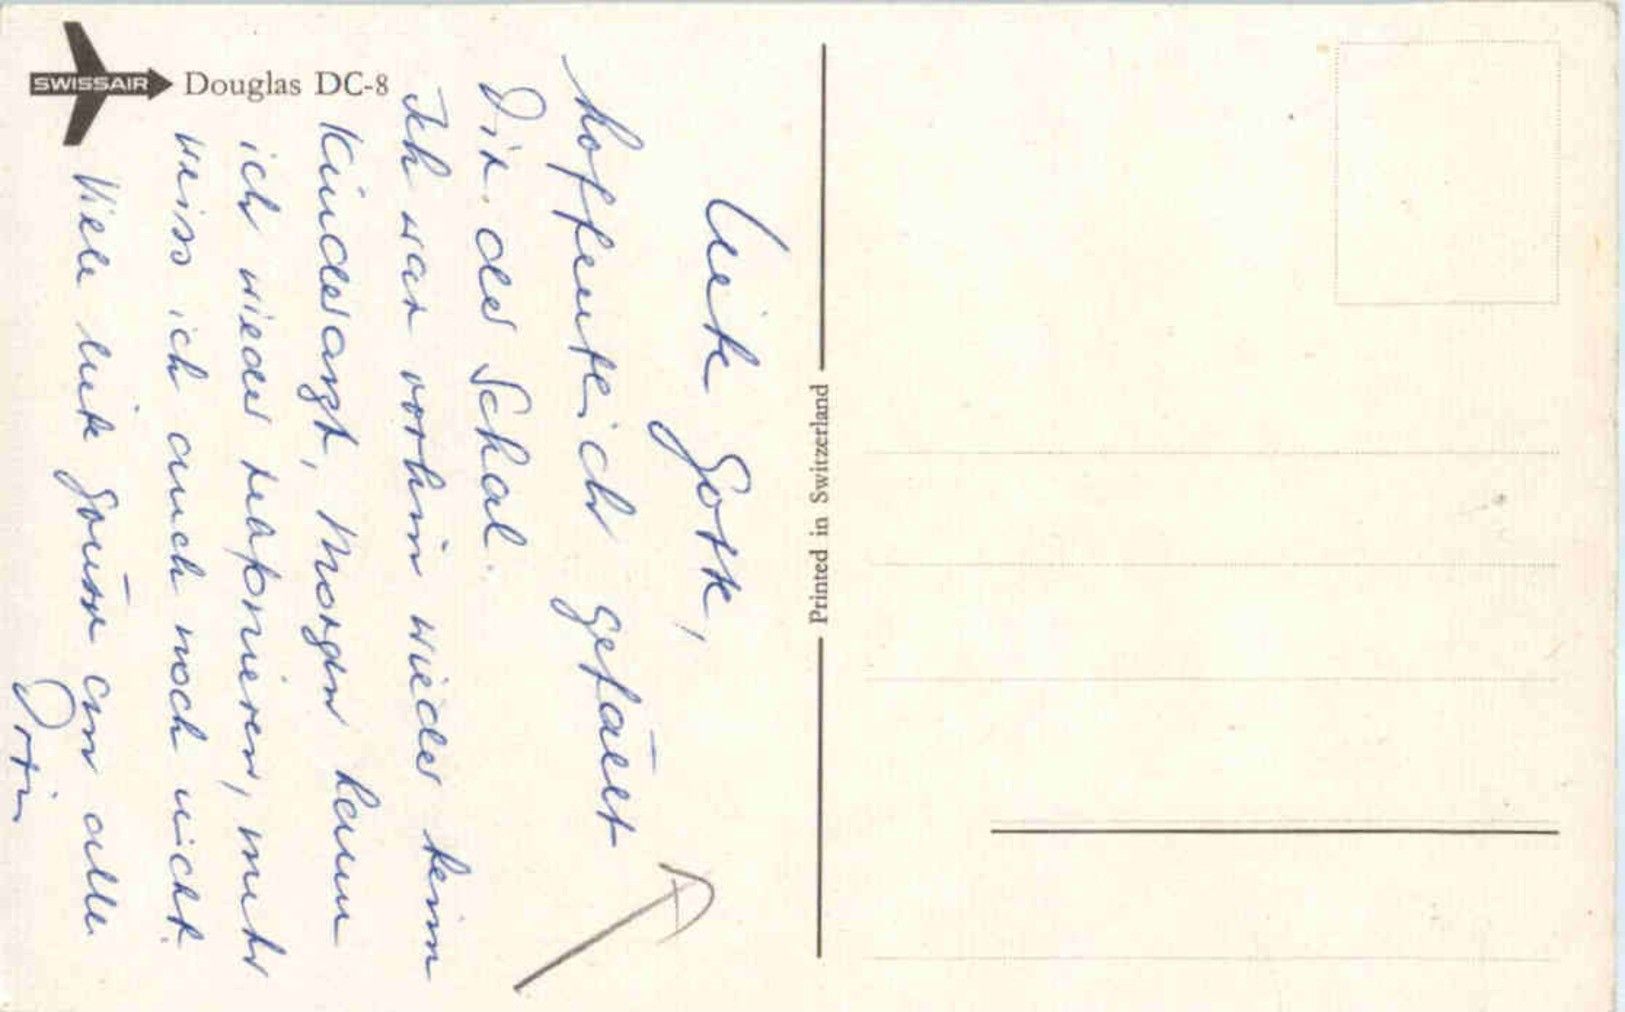 SWISSAIR Douglas DC-8
Printed in Switzerland
Liebe Gotte,
hoffentlich gefällt
Dir der Schal.
Ich war vorhin wieder beim
Kinderarzt, Morgen kann
ich wieder telefonieren, mehr
weiss ich auch noch nicht.
Viele liebe Grüsse an alle